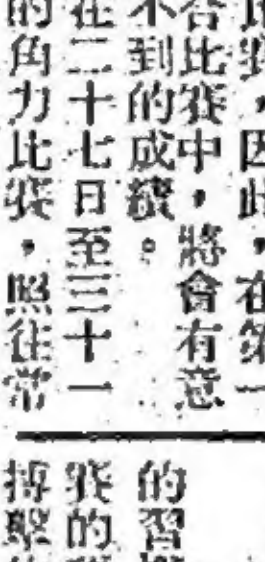 比賽，因此，在第一
合比賽中，將會有意
不到的成績。
在二十七日至三十一
的角力比賽，照往常
的習
賽的
搏擊